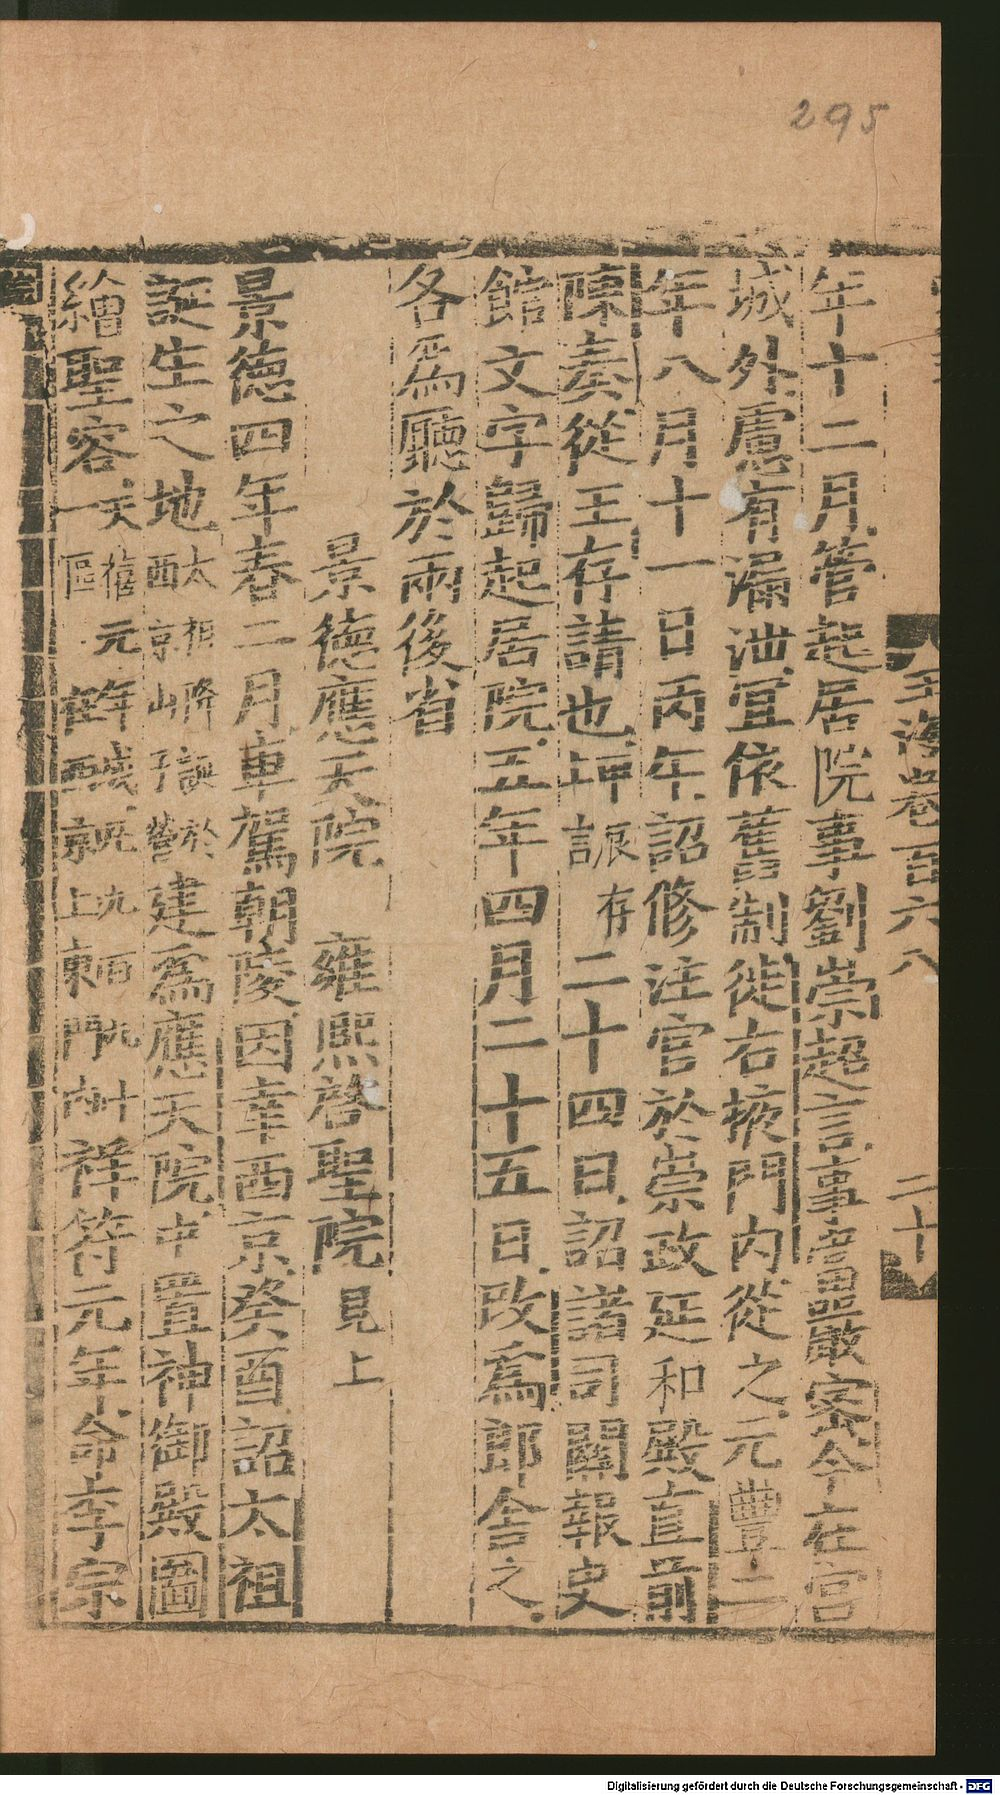 295
玉海卷百六八
二十
年十二月管起居院事劉崇超言事當嚴密今在宮
城外慮有漏泄宜依舊制徙右掖門内從之元豐二
年八月十一日丙午詔修注官於崇政延和殿直前
陳奏從王存請也 二十四日詔諸司關報史
館文字歸起居院五年四月二十五日改爲郎舍之
各爲廳於兩後省
景德應天院 雍熙啓聖院見上
景德四年春二月車駕朝陵因幸西京癸酉詔太祖
誕生之地太祖降誕於西京山子營建爲應天院中置神御殿圖
繪聖容天禧元年 一區 京上東門 祥符元年命李宗
Digitalisierung gefördert durch die Deutsche Forschungsgemeinschaft - DFG